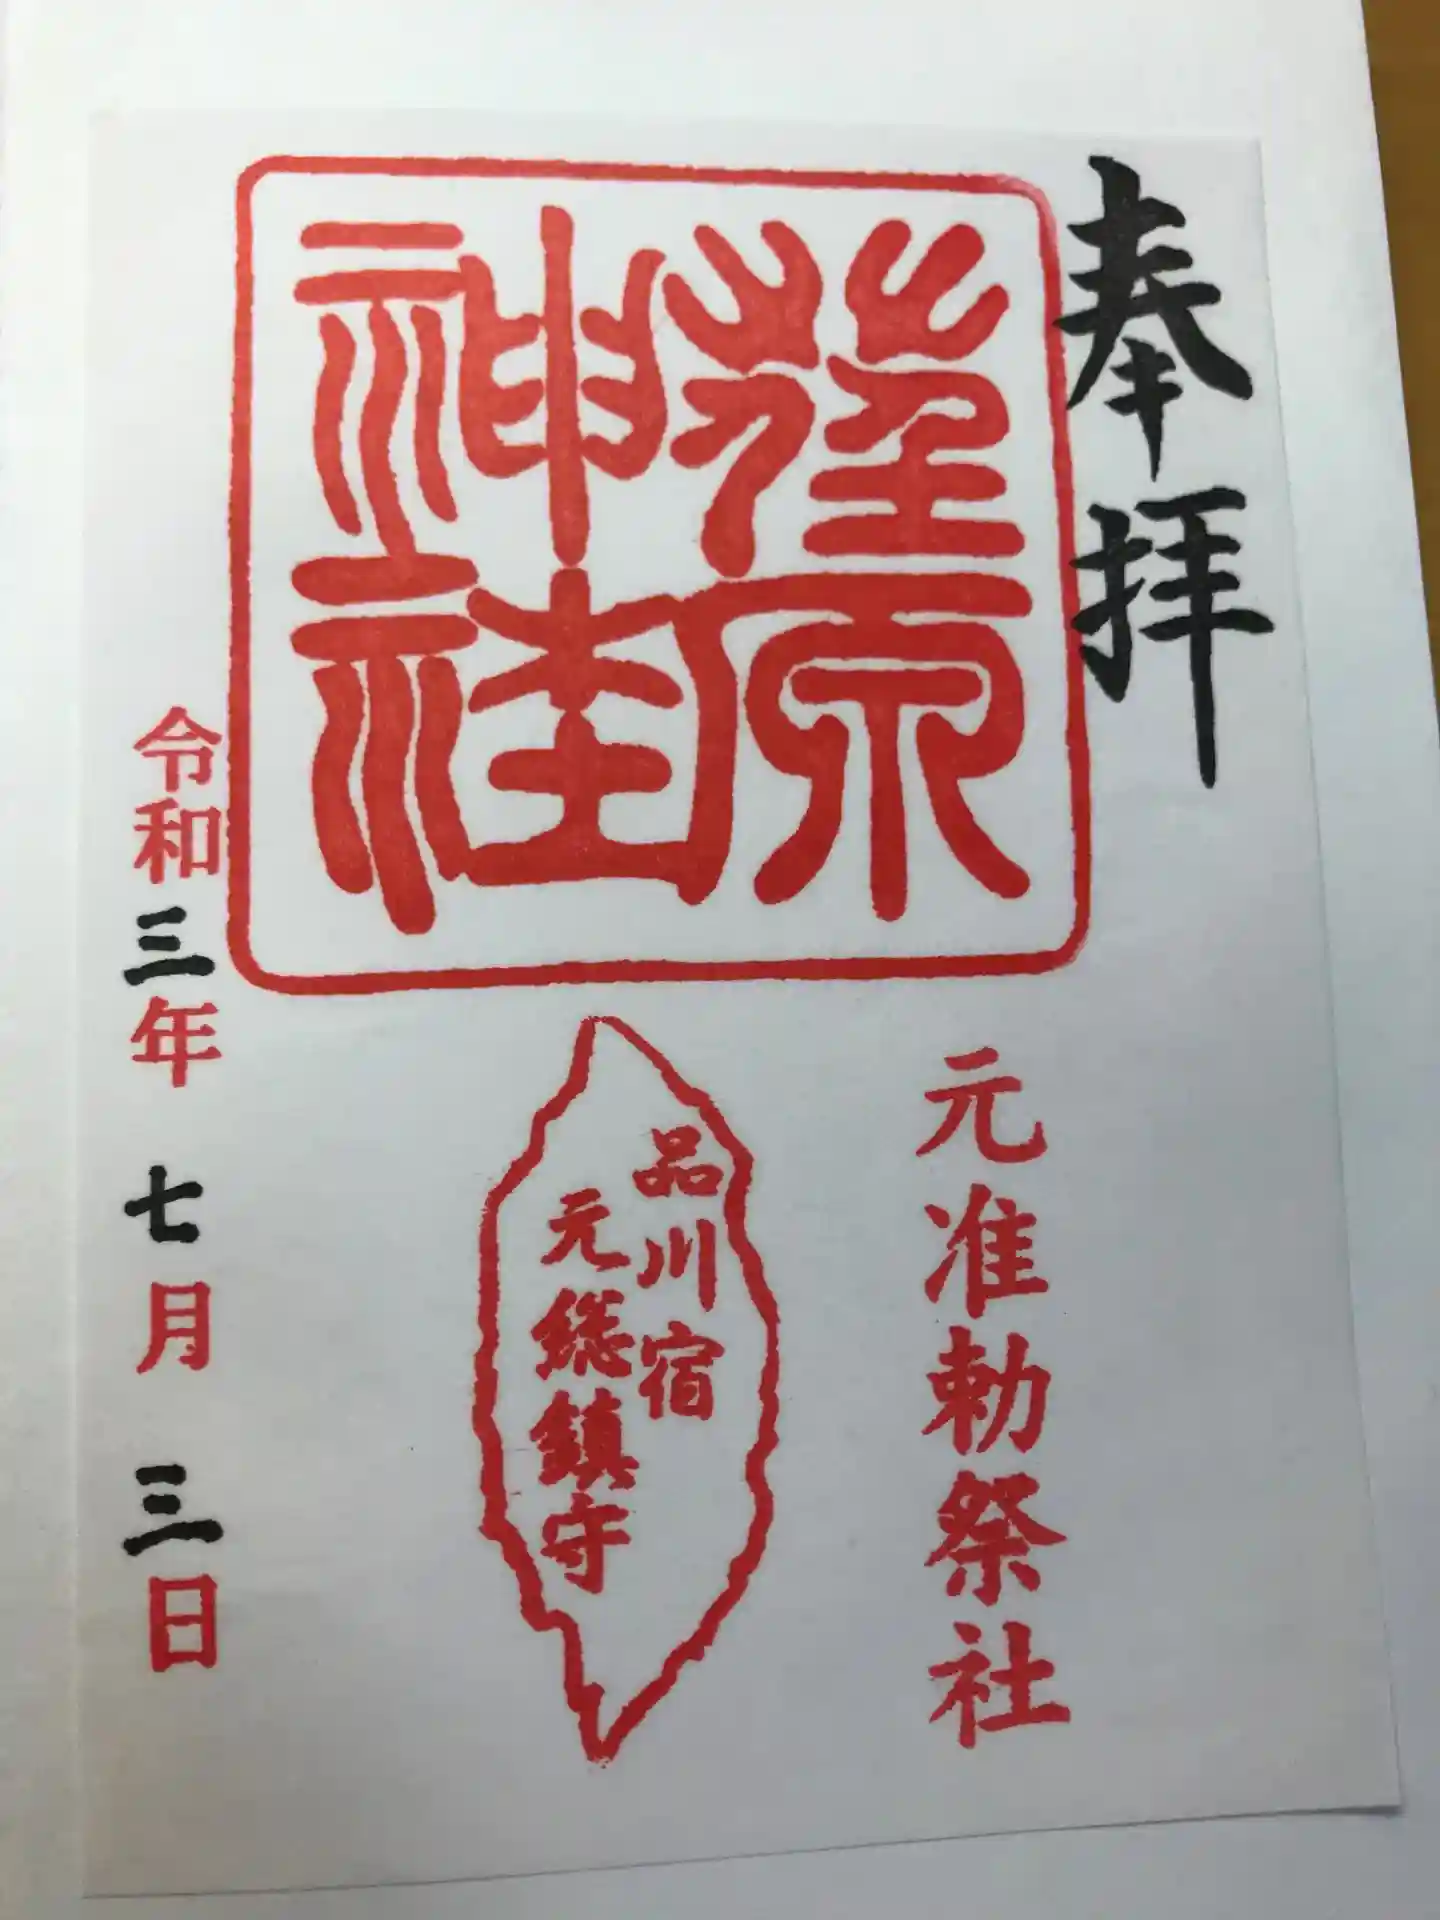 奉拝
荏原
神社
元准勅祭社
品川宿
元総鎮守
令和三年七月三日